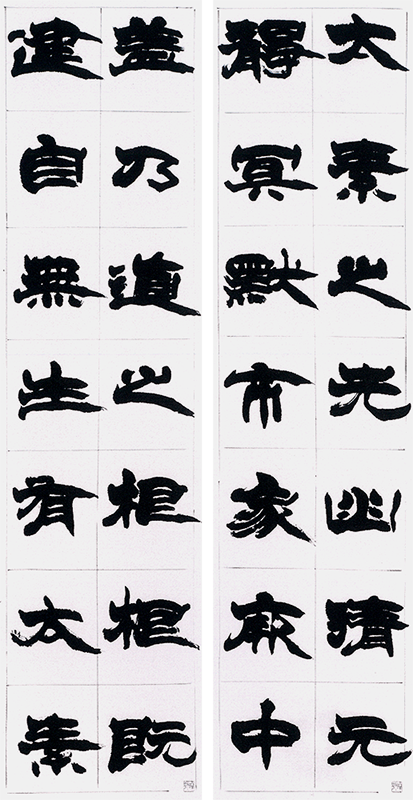 太素之先幽清元
靜冥默不象厥中
蓋乃道之根根既
建自無生有太素